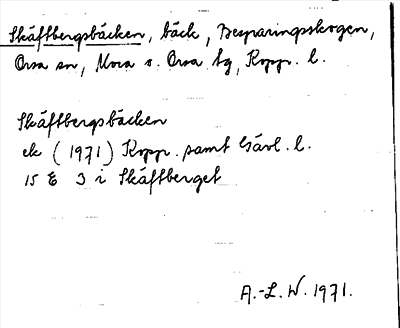 Skäftbergsbäcken, bäck, Besparingsskogen,
Orsa sn, Mora o. Orsa tg, Kopp. l.
Skäftbergsbäcken
ek (1971) Kopp. samt Gävl. l.
15 E 3 i Skäftberget
A.-L. W. 1971.